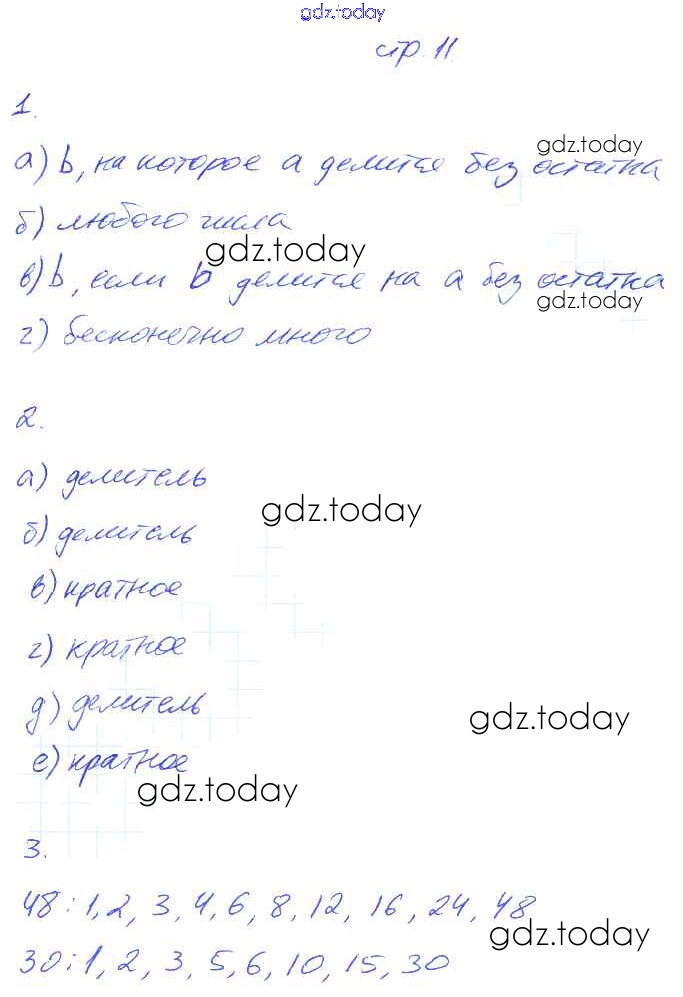 gdz.today
стр. 11.
1.
gdz.today
а) b, на которое а делится без остатка
б) любого числа
gdz.today
в) b, если b делится на а без остатка
gdz.today
г) бесконечно много
2.
а) делитель
gdz.today
б) делитель
в) кратное
г) кратное
д) делитель
gdz.today
е) кратное
gdz.today
3.
48: 1, 2, 3, 4, 6, 8, 12, 16, 24, 48
gdz.today
30: 1, 2, 3, 5, 6, 10, 15, 30